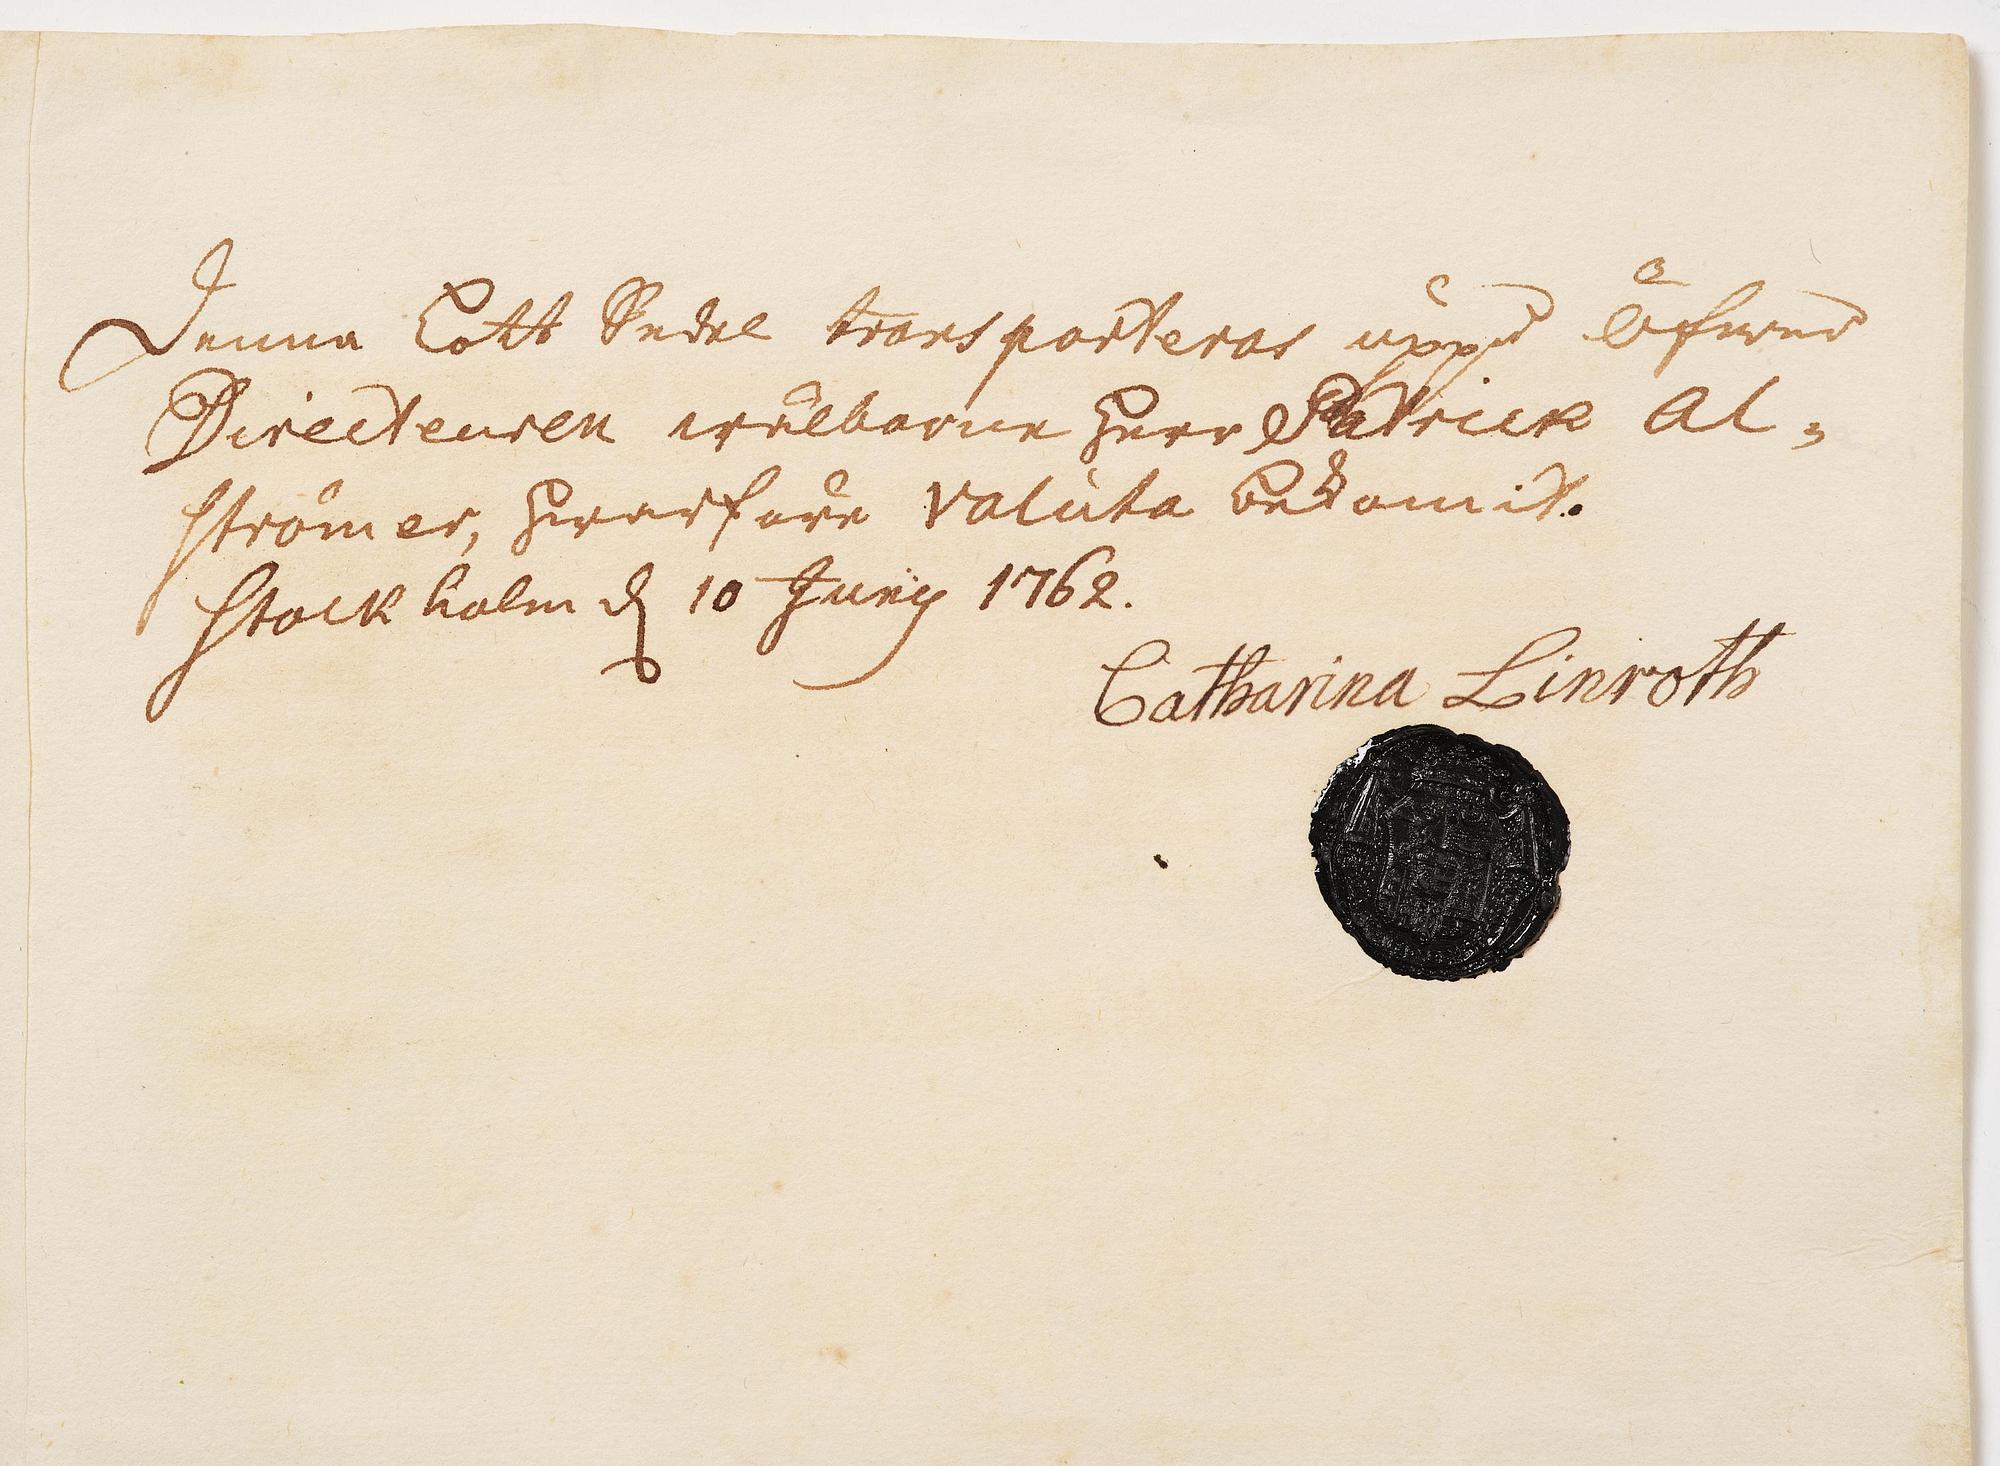 Denna Lott Sedel transporteras uppå Öfwer
Directeuren wälborne Herr Patrick Al,
strömer, hwarföre Valuta bekommit.
Stockholm d 10 Junij 1762.
Catharina Linroth